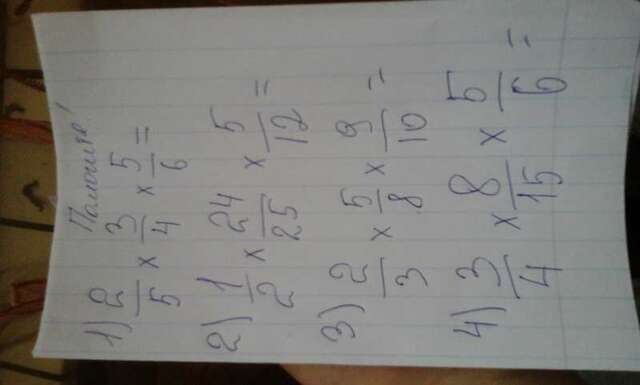 Помогите!
1) 2/5 x 3/4 x 5/6 =
2) 1/2 x 24/25 x 5/12 =
3) 2/3 x 5/8 x 9/10 =
4) 3/4 x 8/15 x 5/6 =